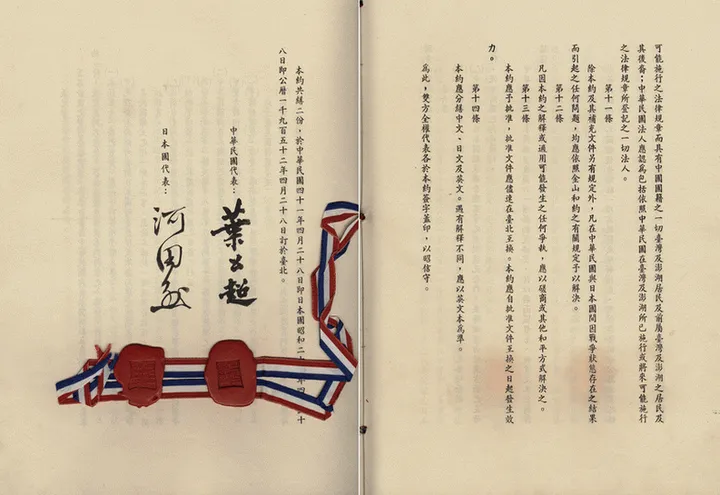 可能施行之法律規章而具有中國國籍之一切臺灣及澎湖居民及前屬臺灣及澎湖之居民及
其後裔；中華民國法人應認為包括依照中華民國在臺灣及澎湖所已施行或將來可能施行
之法律規章所登記之一切法人。
第十一條
除本約及其補充文件另有規定外，凡在中華民國與日本國間因戰爭狀態存在之結果
而引起之任何問題，均應依照金山和約之有關規定予以解決。
第十二條
凡因本約之解釋或適用可能發生之任何爭執，應以磋商或其他和平方式解決之。
第十三條
本約應予批准，批准文件應儘速在臺北互換。本約應自批准文件互換之日起發生效
力。
第十四條
本約應分繕中文、日文及英文。遇有解釋不同，應以英文本為準。
為此，雙方全權代表各於本約簽字蓋印，以昭信守。
本約共繕二份，於中華民國四十一年四月二十八日即日本國昭和二十年四月二十
八日即公曆一千九百五十二年四月二十八日訂於臺北。
中華民國代表：
葉公超
日本國代表：
河田烈